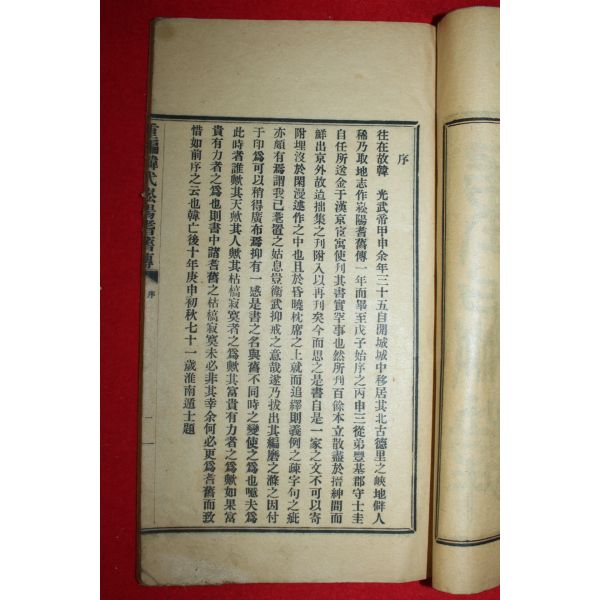 序
往在故韓　光武帝甲申余年三十五自開城城中移居其北古德里之峽地僻人
稀乃取地志作崧陽耆舊傳一年而畢至戊子始序之丙申三從弟豐基郡守士圭
自任所送金于漢京宦寓使刋其書實罕事也然所刋百餘本立散盡於搢紳間而
鮮出京外故迨拙集之刋附入以再刋矣今而思之是書自是一家之文不可以寄
附埋沒於閑漫述作之中也且於昏曉枕席之上就而追繹則義例之疎字句之疵
亦頗有焉謂我已耄置之姑息豈衛武抑戒之意哉遂乃拔出其編磨之滌之因付
于印爲可以稍得廣布焉抑有一感是書之名與舊不同時之變使之爲也噫夫爲
此時者誰歟其天歟其人歟其枯槁寂寞者之爲歟其富貴有力者之爲歟如果富
貴有力者之爲也則書中諸耆舊之枯槁寂寞未必非其幸余何必更爲耆舊而致
惜如前序之云也韓亡後十年庚申初秋七十一歲淮南遁士題
重編韓代崧陽耆舊傳
序